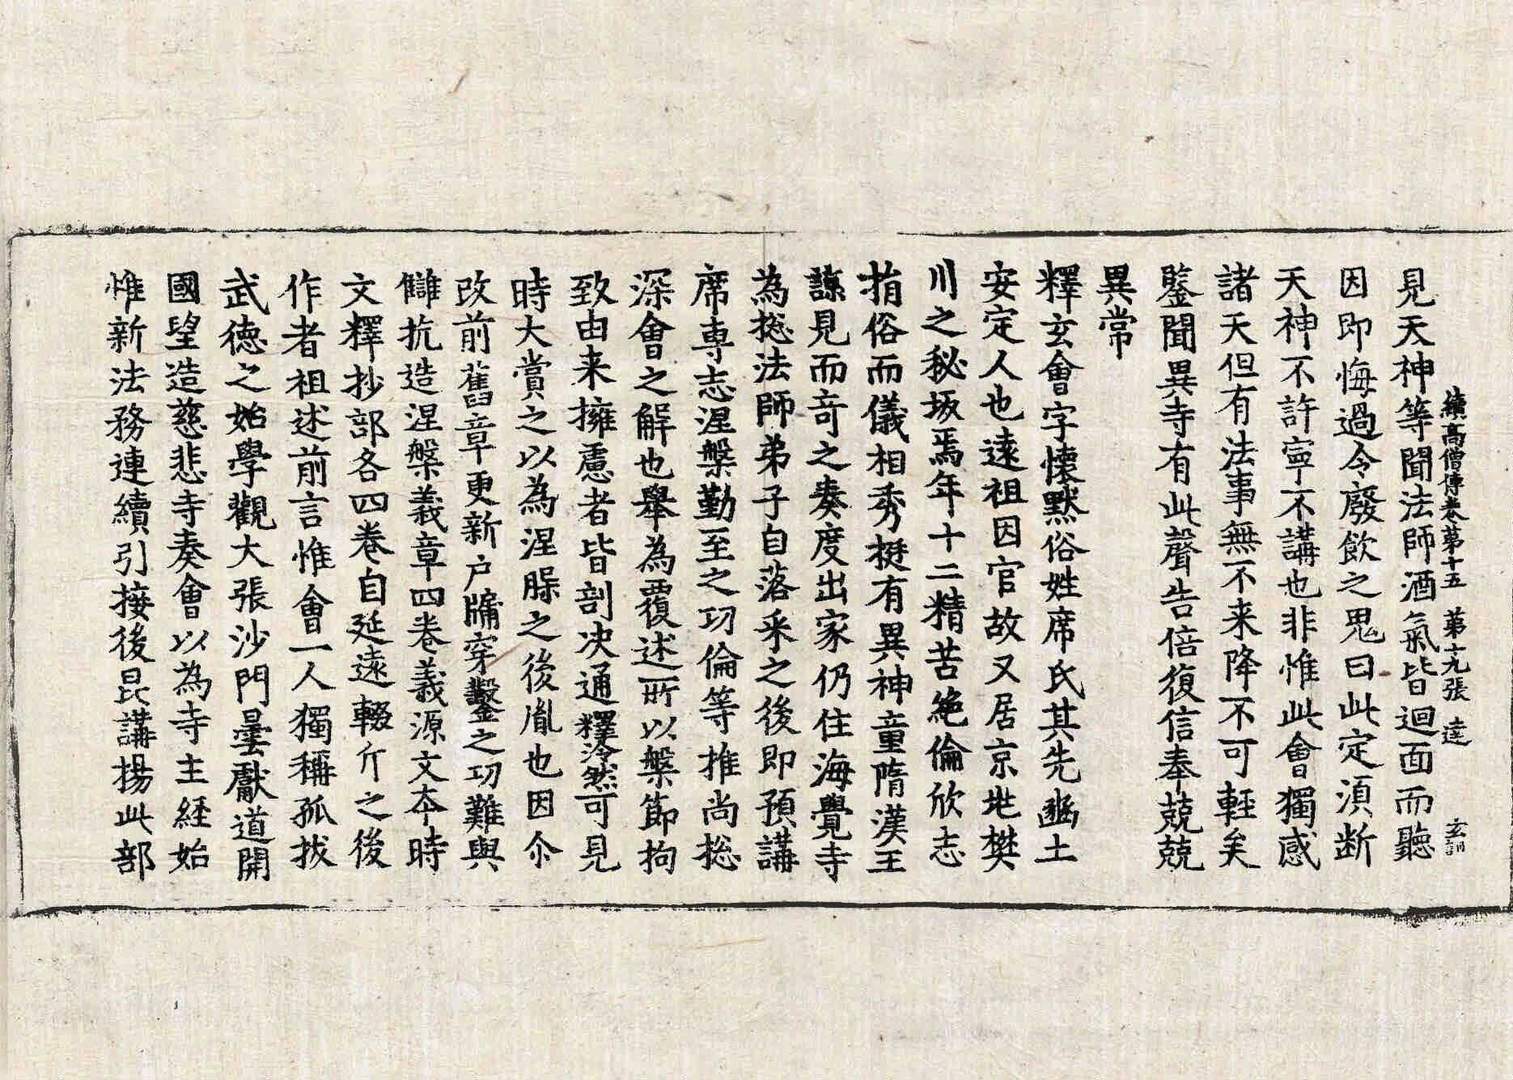 續高僧傳卷第十五 第十九張 達 玄訓
見天神等聞法師酒氣皆迴面而聽
因即悔過令廢飲之鬼曰此定湏断
天神不許寧不講也非惟此會獨感
諸天但有法事無不来降不可輕矣
鑒聞異寺有此聲告倍復信奉兢兢
異常
釋玄會字懷默俗姓席氏其先豳土
安定人也遠祖因官故又居京地樊
川之秘坂焉年十二精苦絶倫欣志
捐俗而儀相秀挺有異神童隋漢王
諒見而竒之奏度出家仍住海覺寺
為捴法師弟子自落采之後即預講
席専志涅槃勤至之功倫等推尚捴
深會之解也舉為覆述所以槃節拘
致由来擁慮者皆剖决通釋泠然可見
時大賞之以為涅槃之後胤也因尒
改前舊章更新户牖穿鑿之功難與
讎抗造涅槃義章四巻義源文本時
文釋抄部各四巻自延遠輟斤之後
作者祖述前言惟會一人獨稱孤拔
武德之始學觀大張沙門曇獻道開
國望造慈悲寺奏會以為寺主經始
惟新法務連續引接後昆講揚此部